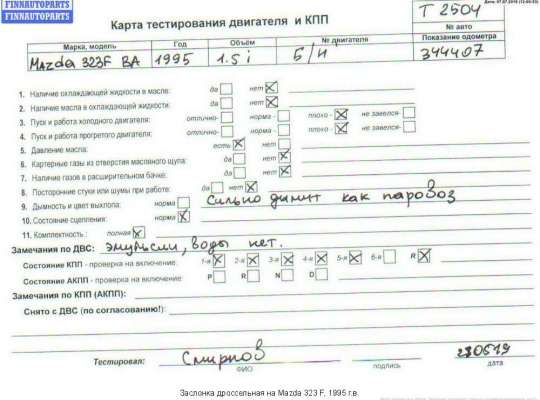 FINNAUTOPARTS
FINNAUTOPARTS
Дата: 07.07.2019
Карта тестирования двигателя и КПП
T 2504
№ авто
Марка, модель Год Объём № двигателя Показание одометра
Mazda 323F BA 1995 1.5 i Б/Н 344407
1. Наличие охлаждающей жидкости в масле: да нет
2. Наличие масла в охлаждающей жидкости: да нет
3. Пуск и работа холодного двигателя: отлично- норма - плохо - не завелся-
4. Пуск и работа прогретого двигателя: отлично- норма - плохо - не завелся-
5. Давление масла: есть нет
6. Картерные газы из отверстия масляного щупа: да нет
7. Наличие газов в расширительном бачке: да нет
8. Посторонние стуки или шумы при работе: да нет
9. Дымность и цвет выхлопа: норма сильно дымит как паровоз
10. Состояние сцепления: норма
11. Комплектность : полная
Замечания по ДВС: эмульсии, воды нет.
Состояние КПП - проверка на включение: 1-я 2-я 3-я 4-я 5-я 6-я R
Состояние АКПП - проверка на включение: P R N D
Замечания по КПП (АКПП):
Снято с ДВС (по согласованию!):
Тестировал: Смирнов
ФИО подпись дата
Заслонка дроссельная на Mazda 323 F, 1995 г.в.